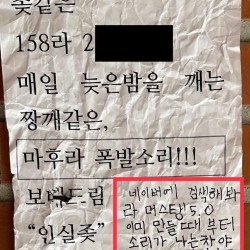 좆같은
158라 2
매일 늦은밤을 깨는
짱깨같은,
마후라 폭발소리!!!
보배드림
"인실좆"
네이버에 검색해봐
라 머스탱5.0
이미 만들때 부터
소리가 나는차야